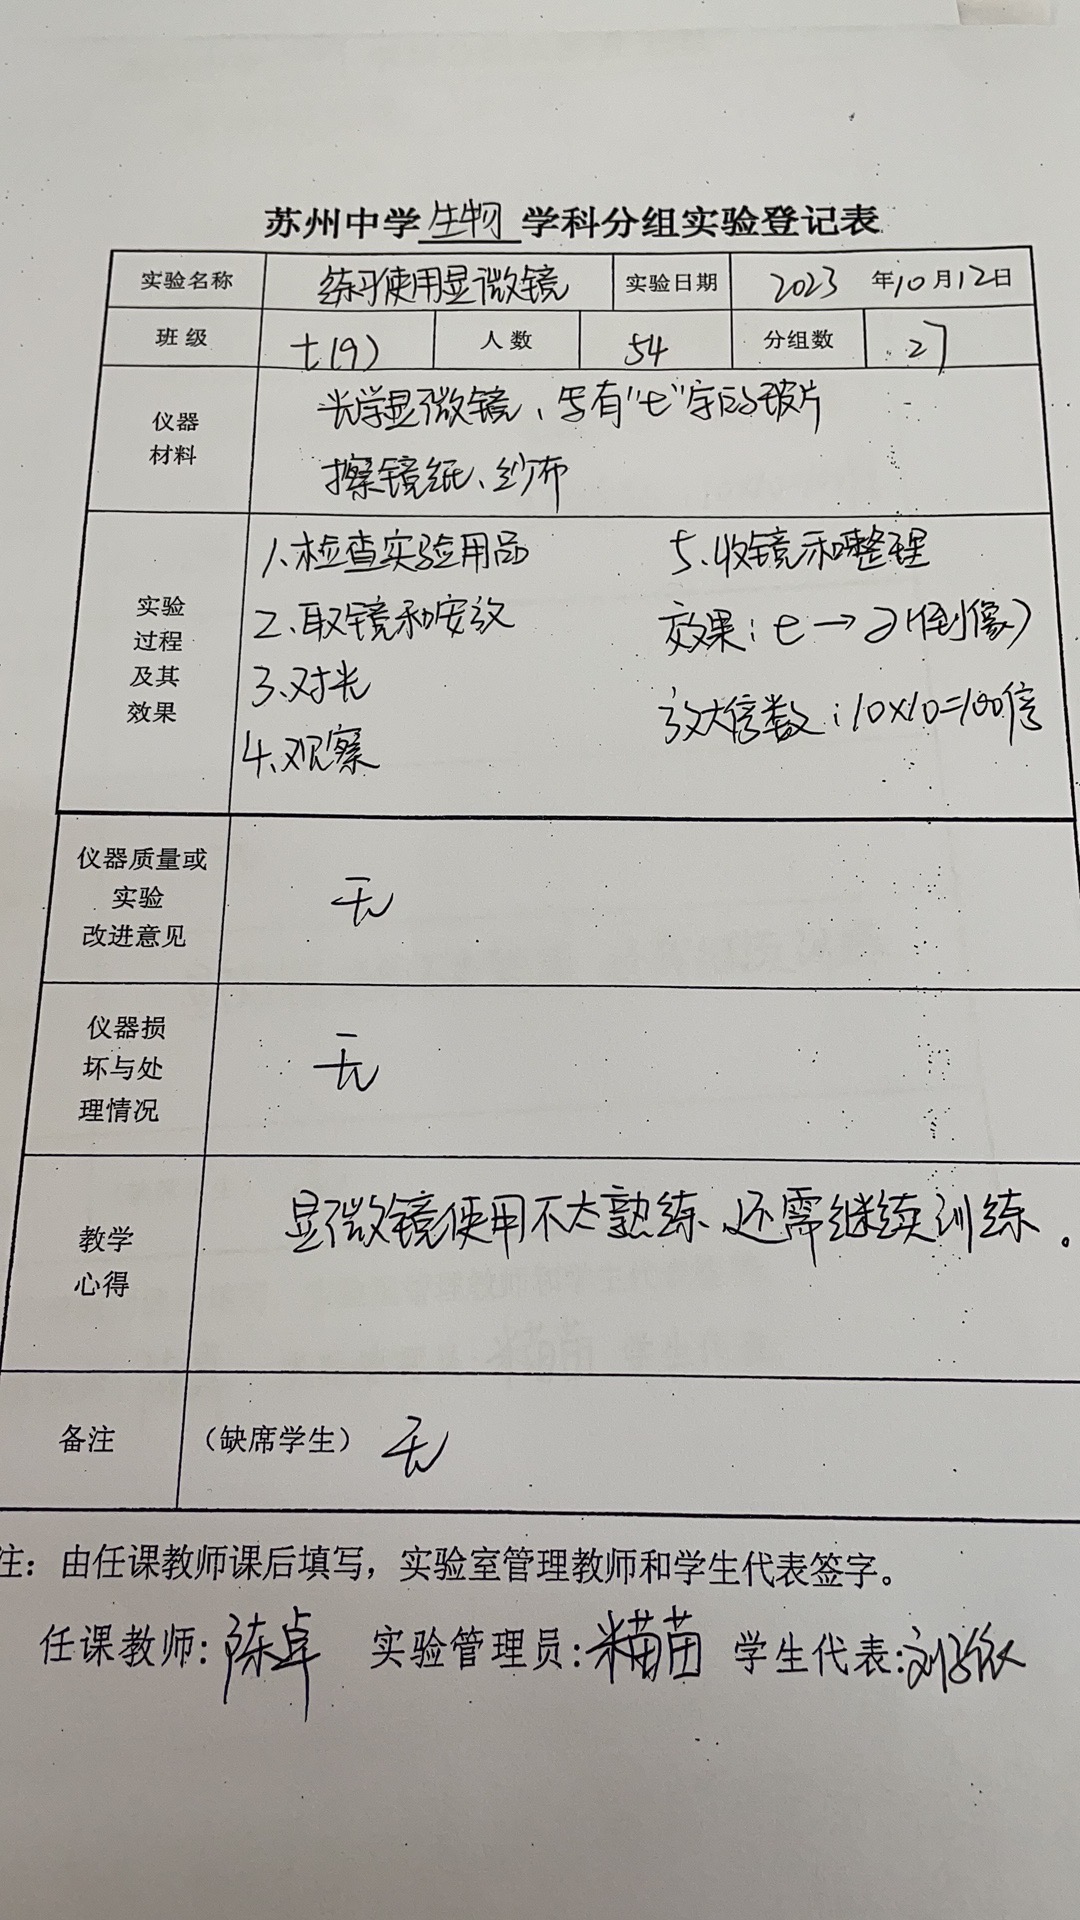 苏州中学 生物 学科分组实验登记表
实验名称 练习使用显微镜 实验日期 2023 年10月12日
班级 七(9) 人数 54 分组数 27
仪器材料
光学显微镜、写有"e"字的玻片
擦镜纸、纱布
实验过程及其效果
1、检查实验用品
2、取镜和安放
3、对光
4、观察
5、收镜和整理
效果：e→ə(倒像)
放大倍数：10×10=100倍
仪器质量或实验改进意见 无
仪器损坏与处理情况 无
教学心得 显微镜使用不太熟练、还需继续训练。
备注 （缺席学生） 无
注：由任课教师课后填写，实验室管理教师和学生代表签字。
任课教师:陈卓 实验管理员: 学生代表: